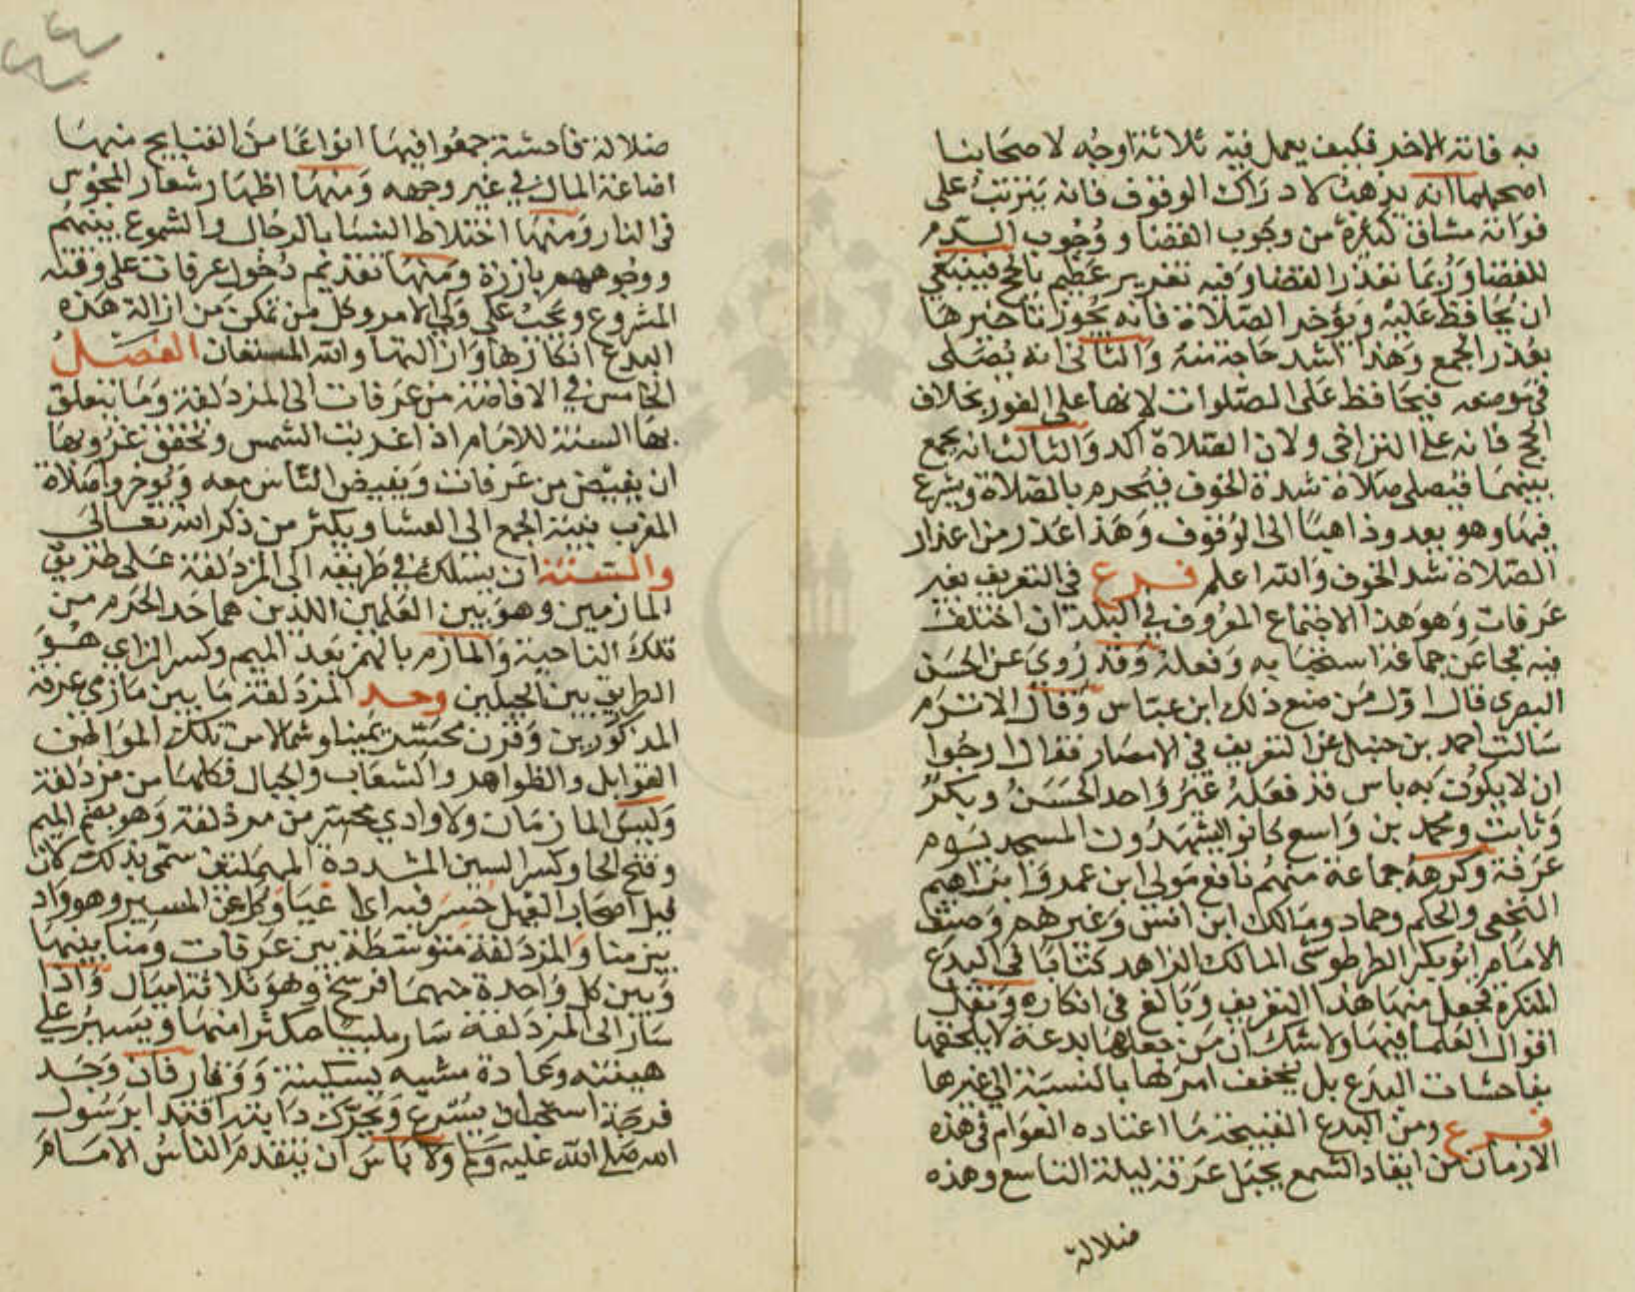 به فاته الاخر فكيف يعمل فيه ثلاثة اوجه لاصحابنا
اصحهما انه يذهب لادراك الوقوف فانه يترتب على
فواته مشاق كثيرة من وجوب القضا ووجوب الدم
للقضا وربما تعذر القضا وفيه تغرير عظيم بالحج فينبغي
ان يحافظ عليه ويؤخر الصلاة فانه يجوز تاخيرها
بعذر الجمع وهذا اشد حاجة منه والثاني انه يصلى
في موضعه فيحافظ على الصلوات لانها على الفور بخلاف
الحج فانه على التراخي ولان الصلاة اكد والثالث انه يجمع
بينهما فيصلي صلاة شدة الخوف فيحرم بالصلاة ويشرع
فيها وهو يعدو ذاهبا الى الوقوف وهذا عذر من اعذار
الصلاة شد الخوف والله اعلم فرع في التعريف بغير
عرفات وهو هذا الاجتماع المعروف في البلدان اختلف
فيه فجا عن جماعة استحبابه وفعله وقد روي عن الحسن
البصري قال اول من صنع ذلك ابن عباس وقال الاثرم
سالت احمد بن حنبل عن التعريف في الامصار فقال ارجوا
ان لا يكون به باس قد فعله غير واحد الحسن وبكر
وثابت ومحمد بن واسع كانوا يشهدون المسجد يوم
عرفة وكرهه جماعة منهم نافع مولى ابن عمر وابراهيم
النخعي والحكم وحماد ومالك ابن انس وغيرهم وصنف
الامام ابو بكر الطرطوشى المالك الزاهد كتابا في البدع
المنكرة فجعل منها هذا التعريف وبالغ في انكاره ونقل
اقوال العلما فيها ولا شك ان من جعلها بدعة لا يلحقها
بفاحشات البدع بل يخفف امرها بالنسبة الي غيرها
فرع ومن البدع القبيحة ما اعتاده العوام في هذه
الازمان من ايقاد الشمع بجبل عرفة ليلة التاسع وهذه
ضلالة
ضلالة فاحشة جمعوا فيها انواعا من القبايح منها
اضاعة المال في غير وجهه ومنها اظهار شعار المجوس
في النار ومنها اختلاط النسا بالرجال والشموع بينهم
ووجوههم بارزة ومنها تقديم دخول عرفات على وقته
المشروع ويجب على ولي الامر وكل من تمكن من ازالة هذه
البدع انكارها وازالتها والله المستعان الفصل
الخامس في الافاضة من عرفات الى المزدلفة وما يتعلق
بها السنة للامام اذا غربت الشمس وتحقق غروبها
ان يفيض من عرفات ويفيض الناس معه ويوخروا صلاة
المغرب بنية الجمع الى العشا ويكثر من ذكر الله تعالى
والسنة ان يسلك في طريقه الى المزدلفة على طريق
المازمين وهو بين العلمين اللذين هما حد الحرم من
تلك الناحية والمازم بالهمز بعد الميم وكسر الزاي هو
الطريق بين الجبلين وحد المزدلفة ما بين مازمي عرفة
المذكورين وقرن محسر يمينا وشمالا من تلك المواطن
القوابل والظواهر والشعاب والجبال فكلها من مزدلفة
وليس المازمان ولا وادي محسر من مزدلفة وهو بضم الميم
وفتح الحا وكسر السين المشددة المهملتين سمي بذلك لان
فيل اصحاب الفيل حسر فيه اى اعيا وكل عن المسير وهو واد
بين منا والمزدلفة متوسطة بين عرفات ومنا بينها
وبين كل واحدة منهما فرسخ وهو ثلاثة اميال واذا
سار الى المزدلفة سار ملبيا مكثرا منها ويسير على
هينته وعادة مشيه بسكينة ووقار فان وجد
فرجة استحب ان يسرع ويحرك دابته اقتدا برسول
الله صلى الله عليه وسلم ولا باس ان يتقدم الناس الامام